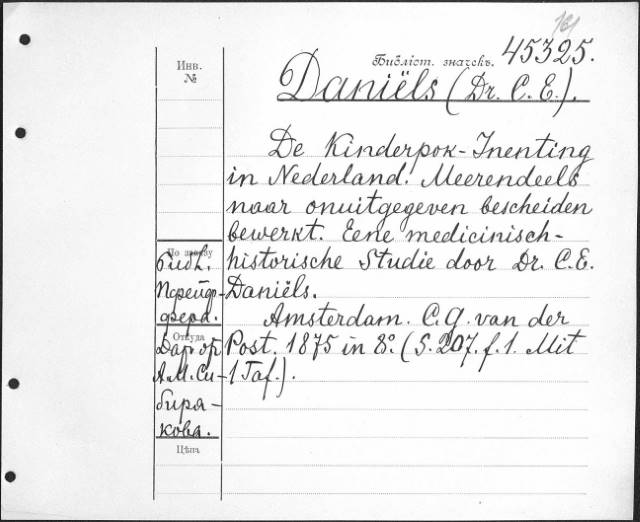 Библіот. значекъ. 45325.
Инв.
№
Daniëls (Dr. C. E.).
De Kinderpok-Inenting
in Nederland. Meerendeels
naar onuitgegeven bescheiden
bewerkt. Eene medicinisch-
historische Studie door Dr. C.E.
Daniëls.
Amsterdam. C.G. van der
Post. 1875 in 8°. (S. 207. f. 1. Mit
1 Taf.).
По заказу
Библ.
Пфейф-
фера.
Откуда
Дар от
А.М. Си-
биря-
кова.
Цѣна